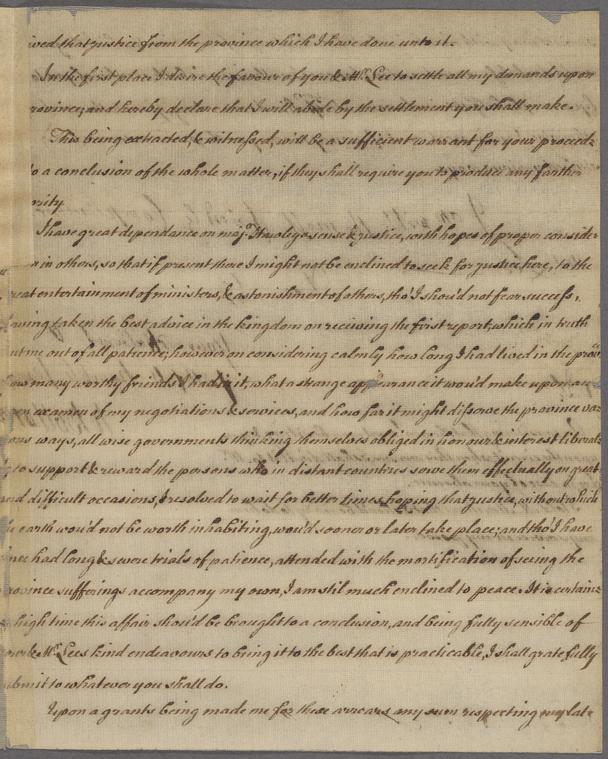 ived that justice from the province which I have done unto it.
In the first place I desire the favour of you & Mr. Lee to settle all my demands upon
rovince, and hereby declare that I will abide by the settlement you shall make.
This being extracted, & witnessed, will be a sufficient warrant for your proceed-
to a conclusion of the whole matter, if they shall require you to produce any farther
ority.
I have great dependance on majr. Hawleys sense & justice, with hopes of proper consider-
n in others, so that if present there I might not be enclined to seek for justice here, to the
reat entertainment of ministers, & astonishment of others, tho' I shou'd not fear success,
having taken the best advice in the kingdom on receiving the first report, which in truth
ut me out of all patience; however on considering calmly how long I had lived in the prov
ow many worthy friends I had in it, what a strange appearance it wou'd make upon an
en examen of my negotiations & services, and how far it might disserve the province var
ous ways, all wise governments thinking themselves obliged in honour & interest liberal-
to support & reward the persons who in distant countries serve them effectually on great
and difficult occasions, I resolved to wait for better times, hoping that justice, without which
he earth wou'd not be worth inhabiting, wou'd sooner or later take place; and tho' I have
ince had long & severe trials of patience, attended with the mortification of seeing the
rovince sufferings accompany my own, I am stil much enclined to peace. It is certain-
high time this affair shou'd be brought to a conclusion, and being fully sensible of
your & Mr. Lees kind endeavours to bring it to the best that is practicable, I shall gratefully
ubmit to whatever you shall do.
Upon a grants being made me for these arrears any sum respecting my late